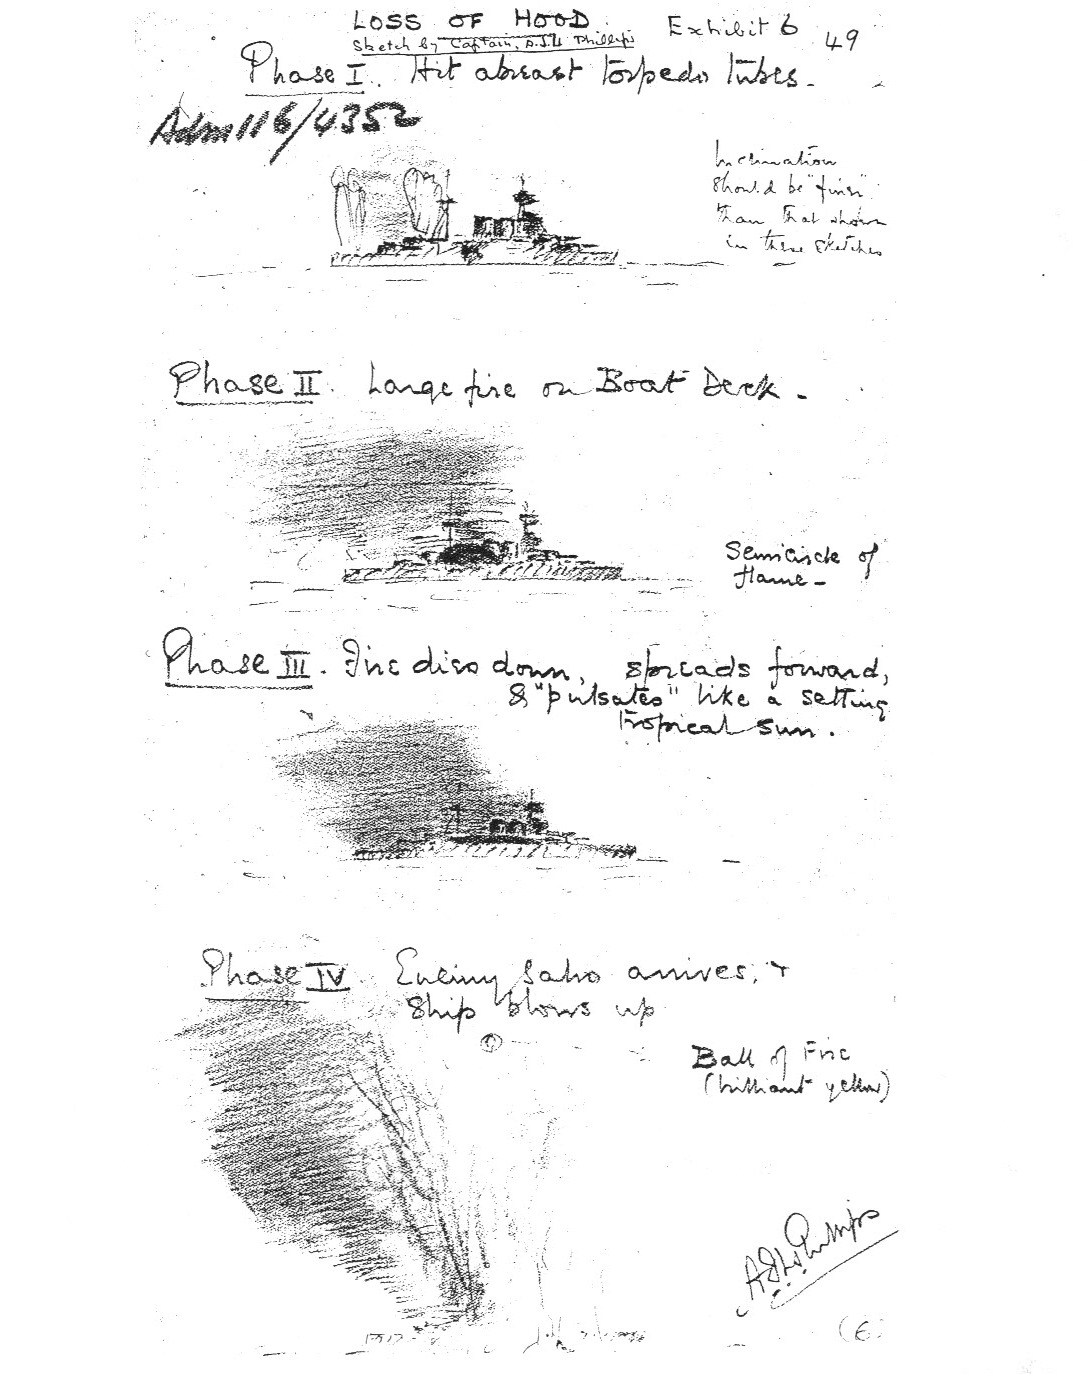 LOSS OF HOOD.
Exhibit 6
49
Sketch by Captain. A.J.L. Phillips
Phase I. Hit abreast torpedo tubes.
Adm 116/4352
Inclination
should be "finer"
than that shown
in these sketches
Phase II. Large fire on Boat Deck.
Semicircle of
flame.
Phase III. Fire dies down, spreads forward,
& "pulsates" like a setting
tropical sun.
Phase IV Enemy Salvo arrives, +
Ship blows up
Ball of Fire
(brilliant yellow)
AJL Phillips
(6)